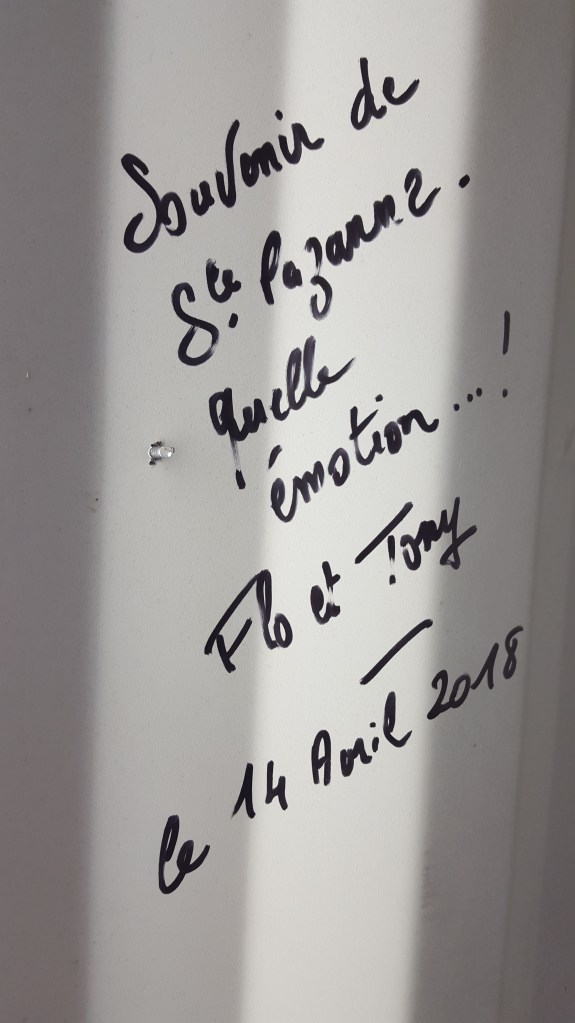 Souvenir de
Ste Pazanne.
quelle
émotion...!
Flo et Tony
le 14 Avril 2018